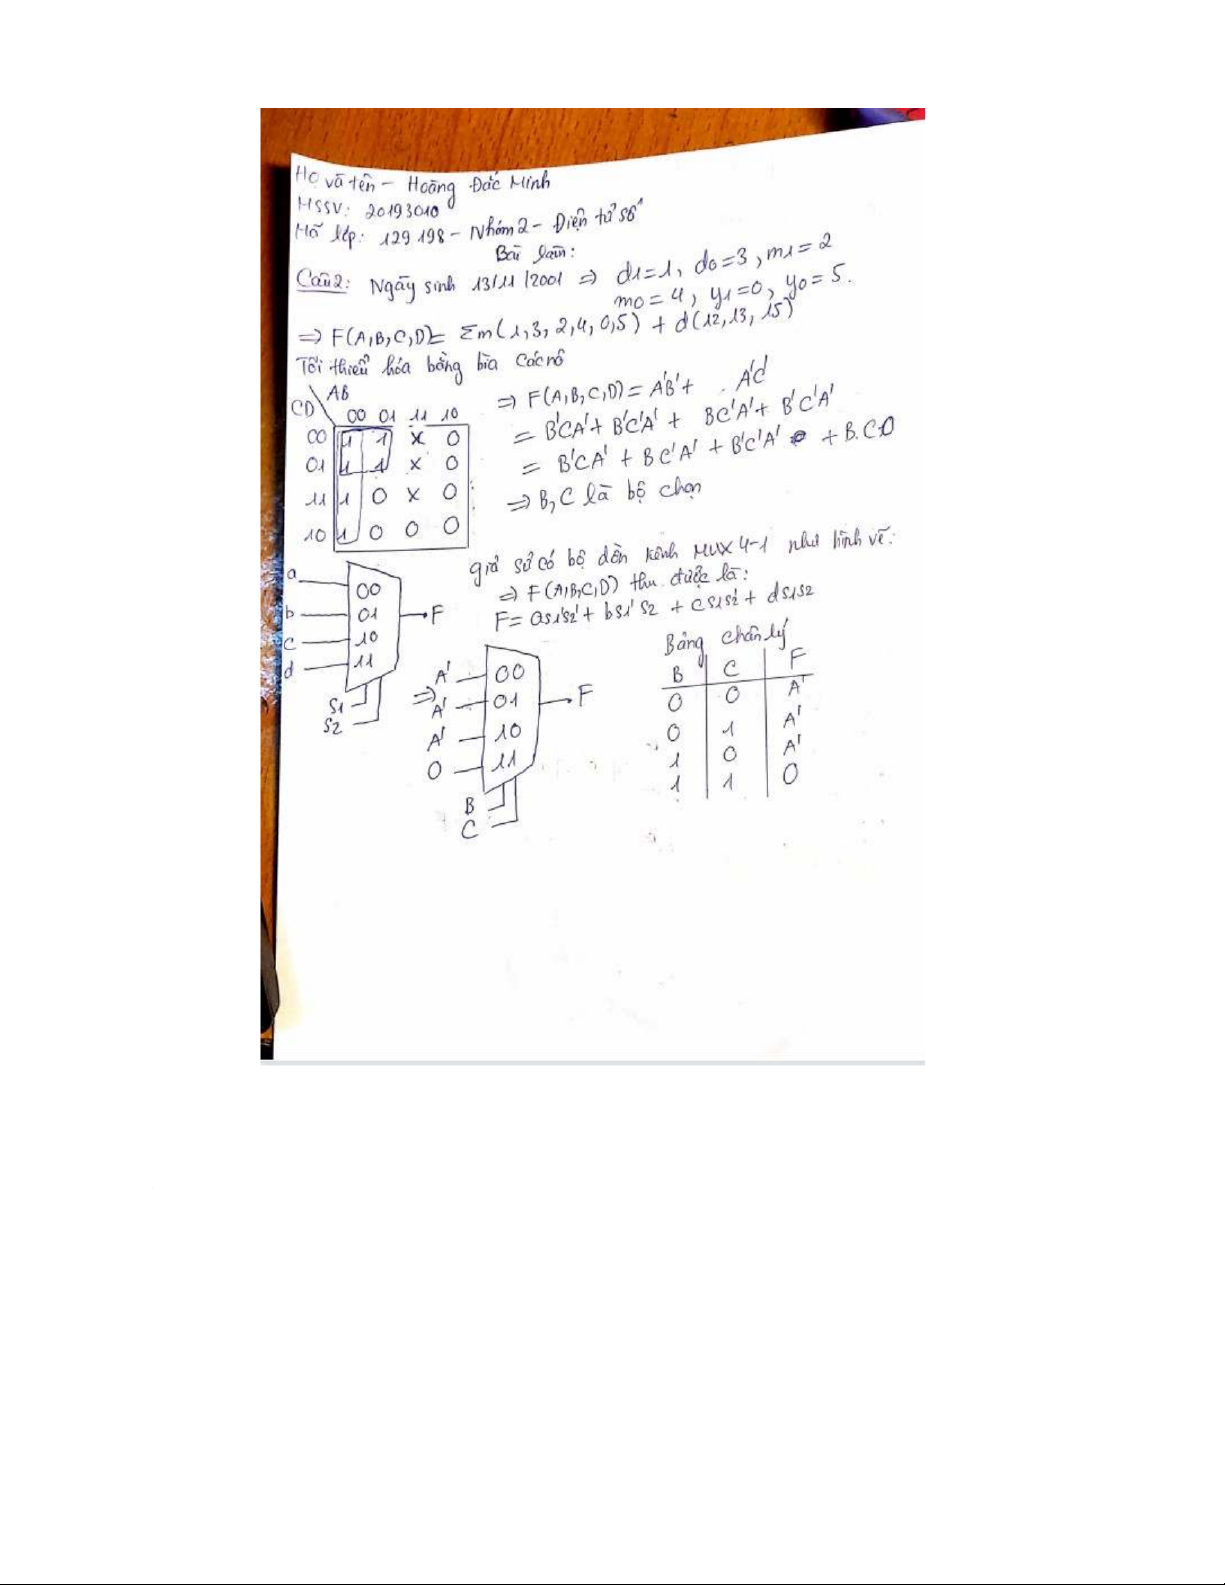 Họ và tên - Hoàng Đắc Minh
MSSV: 20193010
Mã lớp: 129198 - Nhóm 2 - Điện tử số
Bài làm:
Câu 2: Ngày sinh 13/11/2001 ⇒ d1=1, d0=3, m1=2
m0=4, y1=0, y0=5.
⇒ F(A,B,C,D)= Σm(1,3,2,4,0,5) + d(12,13,15)
Tối thiểu hóa bằng bìa Các nô
AB
CD 00 01 11 10
00 1 1 x 0
01 1 1 x 0
11 1 0 x 0
10 1 0 0 0
⇒ F(A,B,C,D) = A'B' + A'C'
= B'CA' + B'C'A' + BC'A' + B'C'A'
= B'CA' + BC'A' + B'C'A' + B.C.0
⇒ B,C là bộ chọn
giả sử có bộ dồn kênh MUX 4-1 như hình vẽ:
⇒ F(A,B,C,D) thu được là:
F = as1's2' + bs1's2 + cs1s2' + ds1s2
a 00
b 01 F
c 10
d 11
S1
S2
⇒
A' 00
A' 01 F
A' 10
0 11
B
C
Bảng chân lý
B C F
0 0 A'
0 1 A'
1 0 A'
1 1 0